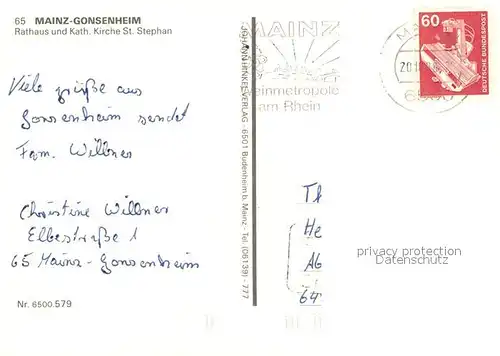 65 MAINZ-GONSENHEIM
Rathaus und Kath. Kirche St. Stephan
Viele grüße aus
Gonsenheim sendet
Fam. Willner
Christine Willner
Elbestraße 1
65 Mainz-Gonsenheim
Nr. 6500.579
JOHANN HENKE VERLAG - 6501 Budenheim b. Mainz - Tel. (06139) - 777
MAINZ
einmetropole
am Rhein
60
DEUTSCHE BUNDESPOST
Th
He
64
privacy protection
Datenschutz